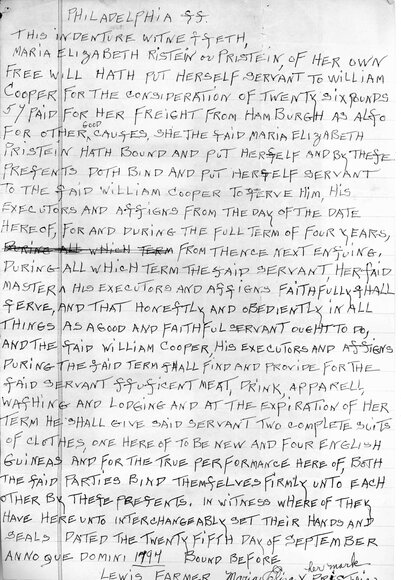 PHILADELPHIA SS.
THIS INDENTURE WITNESSETH,
MARIA ELIZABETH RISTEIN OR PRISTEIN, OF HER OWN
FREE WILL HATH PUT HERSELF SERVANT TO WILLIAM
COOPER FOR THE CONSIDERATION OF TWENTY SIX POUNDS
5Y PAID FOR HER FREIGHT FROM HAMBURGH AS ALSO
FOR OTHER GOOD CAUSES, SHE THE SAID MARIA ELIZABETH
PRISTEIN HATH BOUND AND PUT HERSELF AND BY THESE
PRESENTS DOTH BIND AND PUT HERSELF SERVANT
TO THE SAID WILLIAM COOPER TO SERVE HIM, HIS
EXECUTORS AND ASSIGNS FROM THE DAY OF THE DATE
HEREOF, FOR AND DURING THE FULL TERM OF FOUR YEARS,
DURING ALL WHICH TERM FROM THENCE NEXT ENSUING.
DURING ALL WHICH TERM THE SAID SERVANT, HER SAID
MASTER HIS EXECUTORS AND ASSIGNS FAITHFULLY SHALL
SERVE, AND THAT HONESTLY AND OBEDIENTLY IN ALL
THINGS AS A GOOD AND FAITHFUL SERVANT OUGHT TO DO,
AND THE SAID WILLIAM COOPER, HIS EXECUTORS AND ASSIGNS
DURING THE SAID TERM SHALL FIND AND PROVIDE FOR THE
SAID SERVANT SSUFICENT MEAT, DRINK, APPARELL,
WASHING AND LODGING AND AT THE EXPIRATION OF HER
TERM HE SHALL GIVE SAID SERVANT TWO COMPLETE SUITS
OF CLOTHES, ONE HERE OF TO BE NEW AND FOUR ENGLISH
GUINEAS AND FOR THE TRUE PERFORMANCE HERE OF, BOTH
THE SAID PARTIES BIND THEMSELVES FIRMLY UNTO EACH
OTHER BY THESE PRESENTS. IN WITNESS WHERE OF THEY
HAVE HERE UNTO INTERCHANGEABLY SET THEIR HANDS AND
SEALS DATED THE TWENTY FIFTH DAY OF SEPTEMBER
ANNO QUE DOMINI 1797 BOUND BEFORE
her mark
LEWIS FARMER Maria X